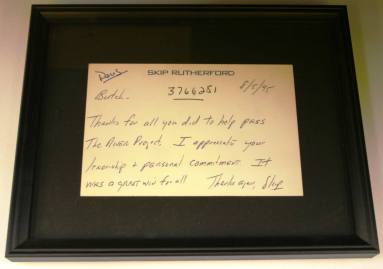 SKIP RUTHERFORD
3766251 8/5/95
Butch.
Thanks for all you did to help pass
The River Project. I appreciate your
friendship + personal commitment. It
was a great win for all Thanks again, Skip